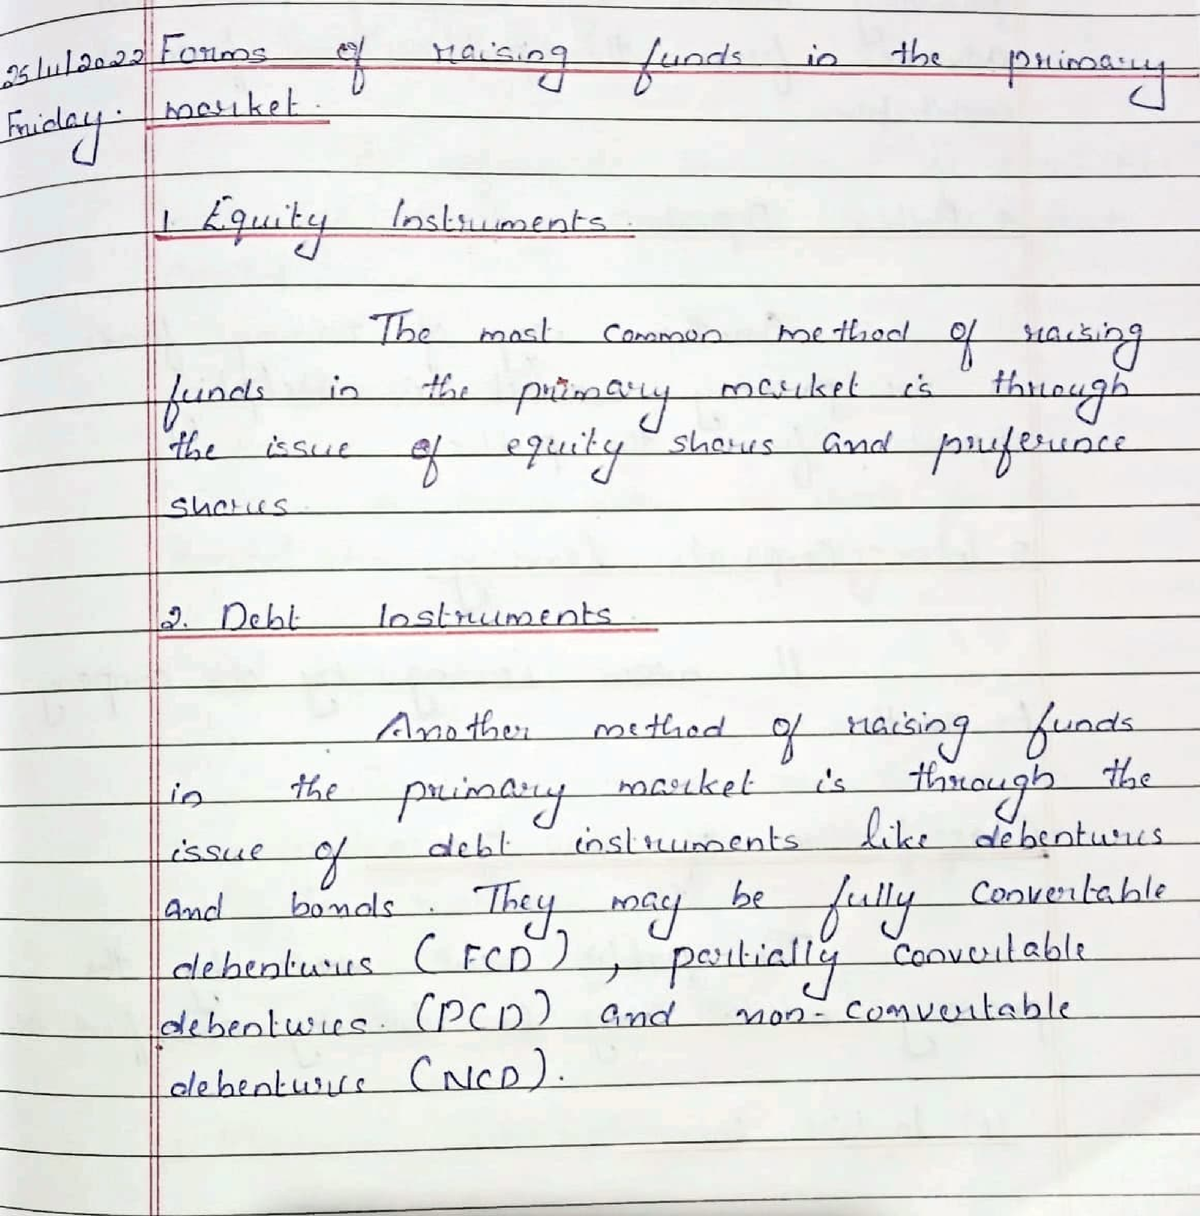 25/11/2022 Forms of raising funds in the primary
Friday. market.
1. Equity Instruments.
The most common method of raising
funds in the primary market is through
the issue of equity shares and preference
shares
2. Debt Instruments.
Another method of raising funds
in the primary market is through the
issue of debt instruments like debentures
and bonds. They may be fully convertable
debentures (FCD), partially convertable
debentures. (PCD) and non-convertable
debentures (NCD).